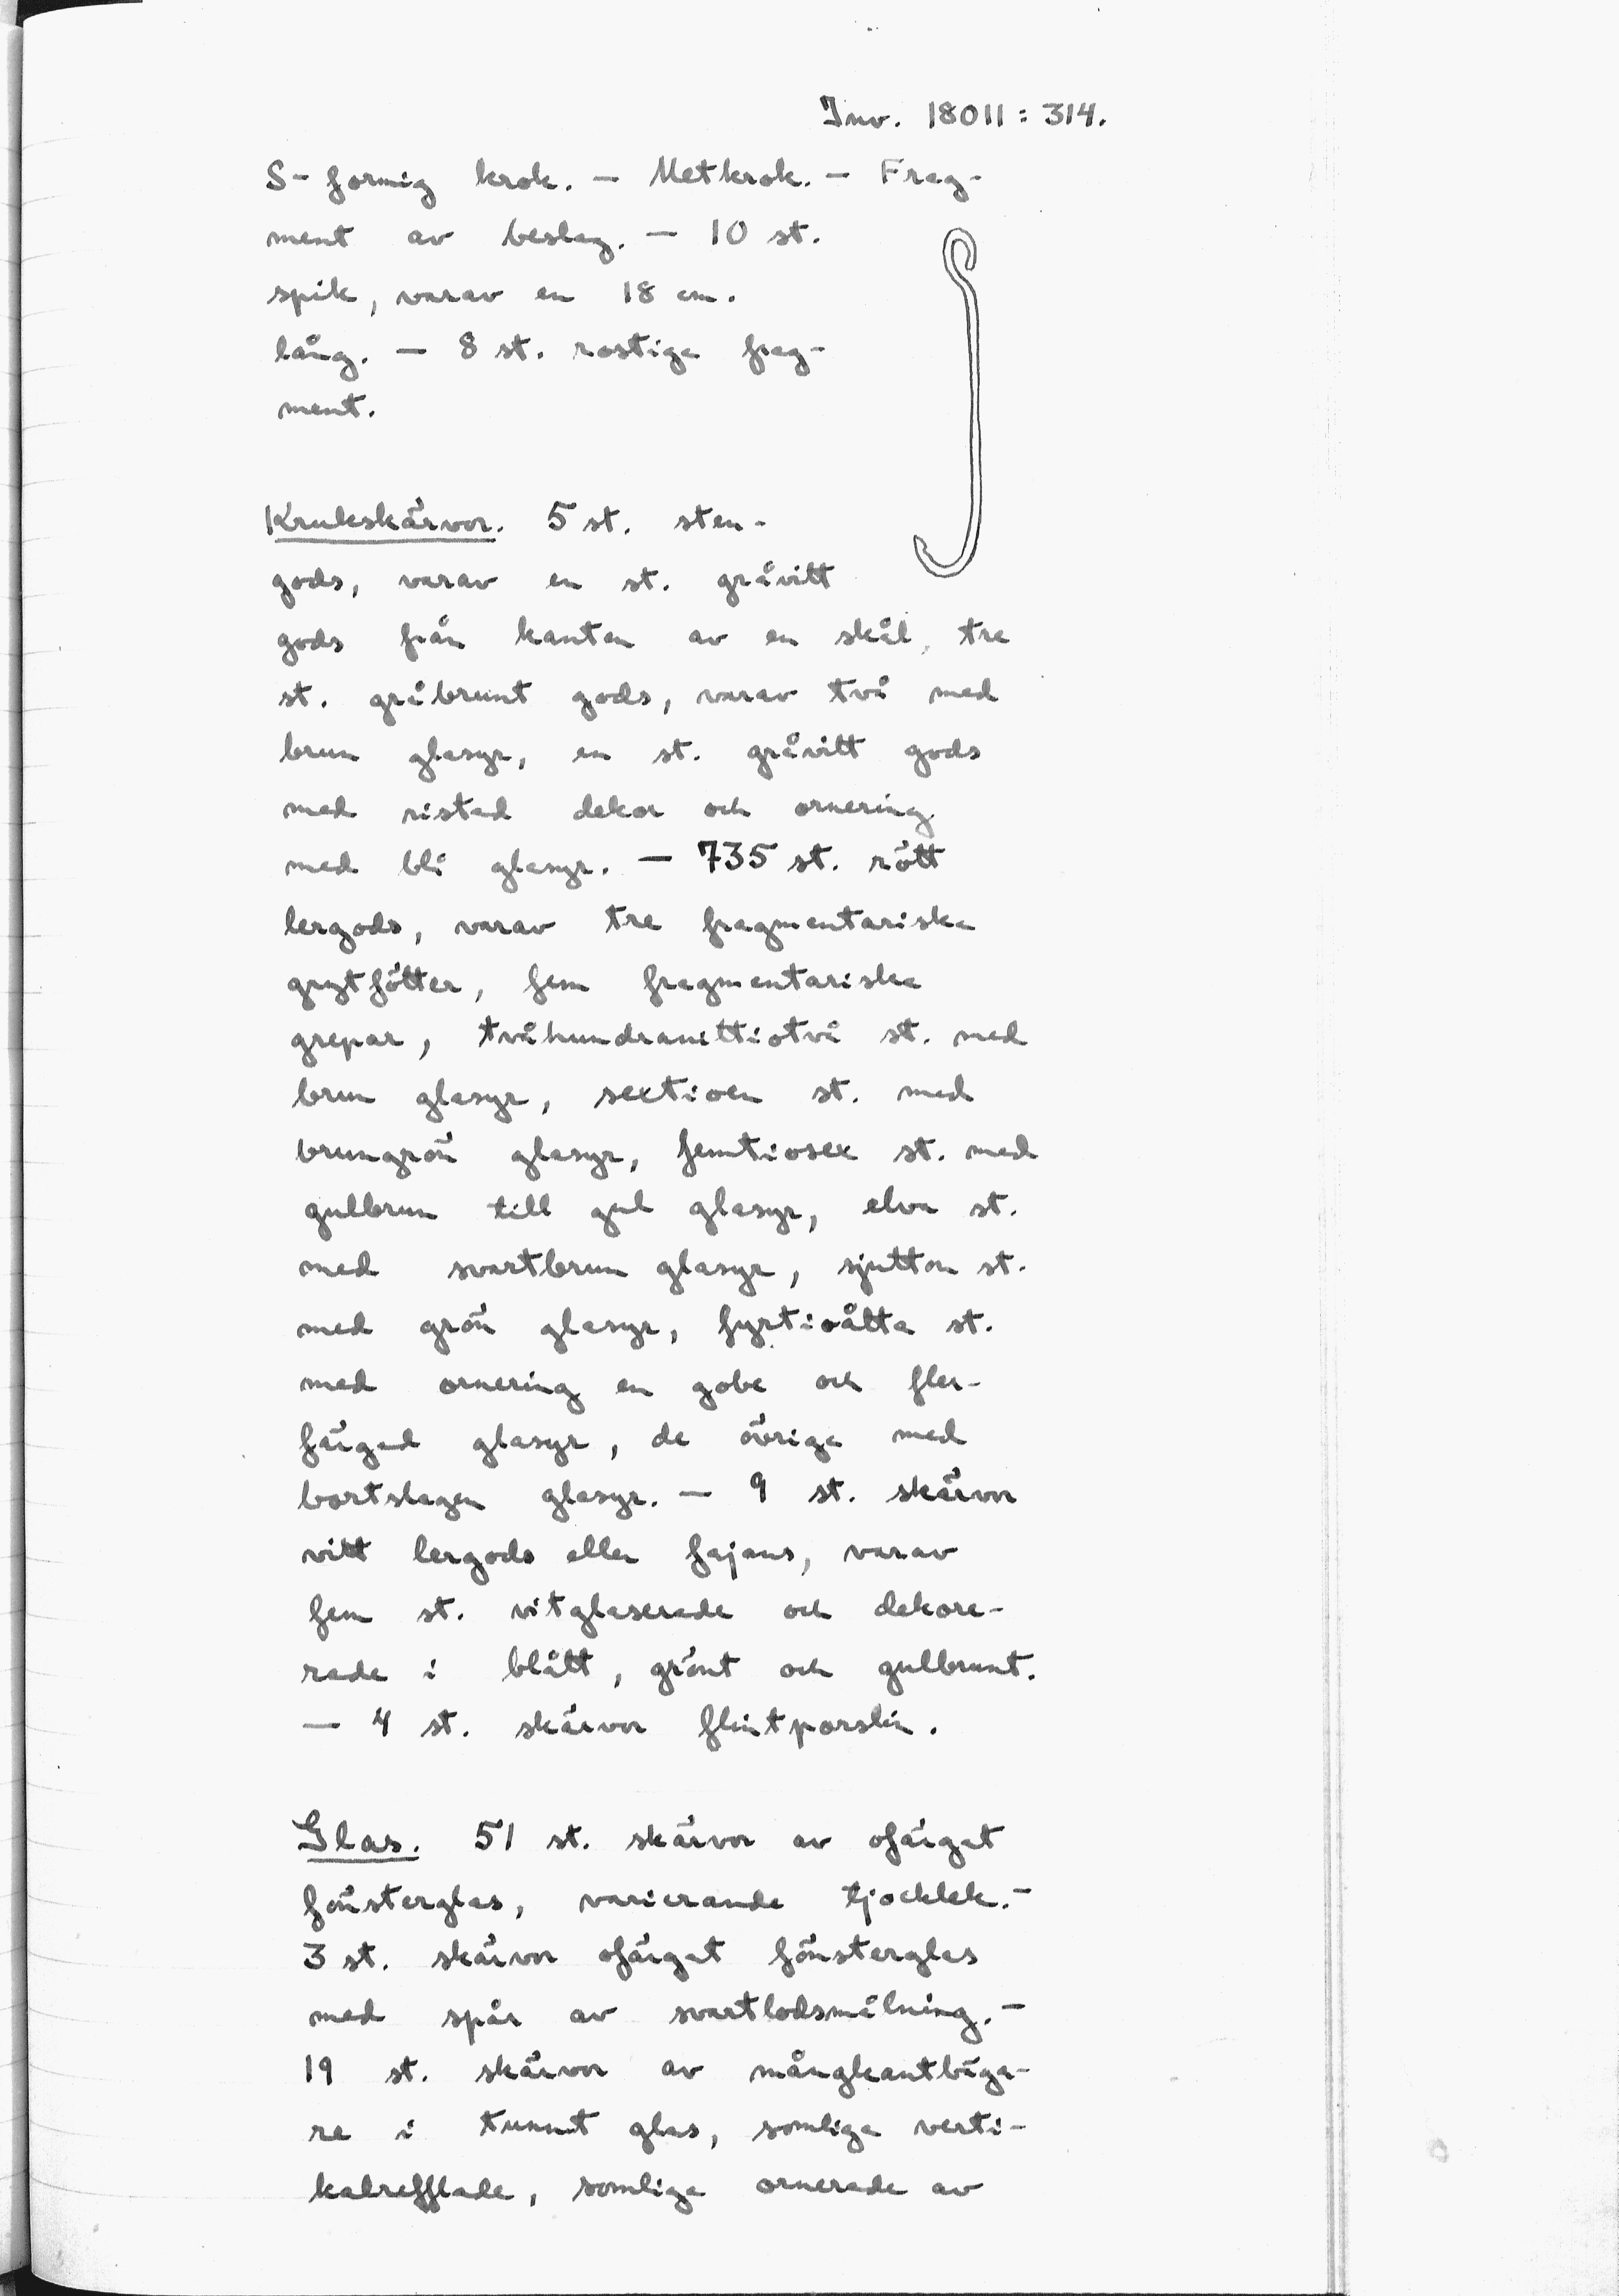 Inv. 18011: 314.
S-formig krok. - Metkrok. - Frag-
ment av beslag. - 10 st.
spik, varav en 18 cm.
lång. - 8 st. rostiga frag-
ment.
Krukskärvor. 5 st. sten-
gods, varav en st. gråvitt
gods från kanten av en skål, tre
st. gråbrunt gods, varav två med
brun glasyr, en st. gråvitt gods
med ristad dekor och ornering
med blå glasyr. - 735 st. rött
lergods, varav tre fragmentariska
grytfötter, fem fragmentariska
grepar, tvåhundranittiotvå st. med
brun glasyr, sextioen st. med
brungrön glasyr, femtiosex st. med
gulbrun till gul glasyr, elva st.
med svartbrun glasyr, sjutton st.
med grön glasyr, fyrtioåtta st.
med ornering en gobe och fler-
färgad glasyr, de övriga med
bortslagen glasyr. - 9 st. skärvor
vitt lergods eller fajans, varav
fem st. vitglaserade och dekore-
rade i blått, grönt och gulbrunt.
- 4 st. skärvor flintporslin.
Glas. 51 st. skärvor av ofärgat
fönsterglas, varierande tjocklek. -
3 st. skärvor ofärgat fönsterglas
med spår av svartlodsmålning. -
19 st. skärvor av mångkantbäga-
re i tunnt glas, somliga verti-
kalrefflade, somliga ornerade av